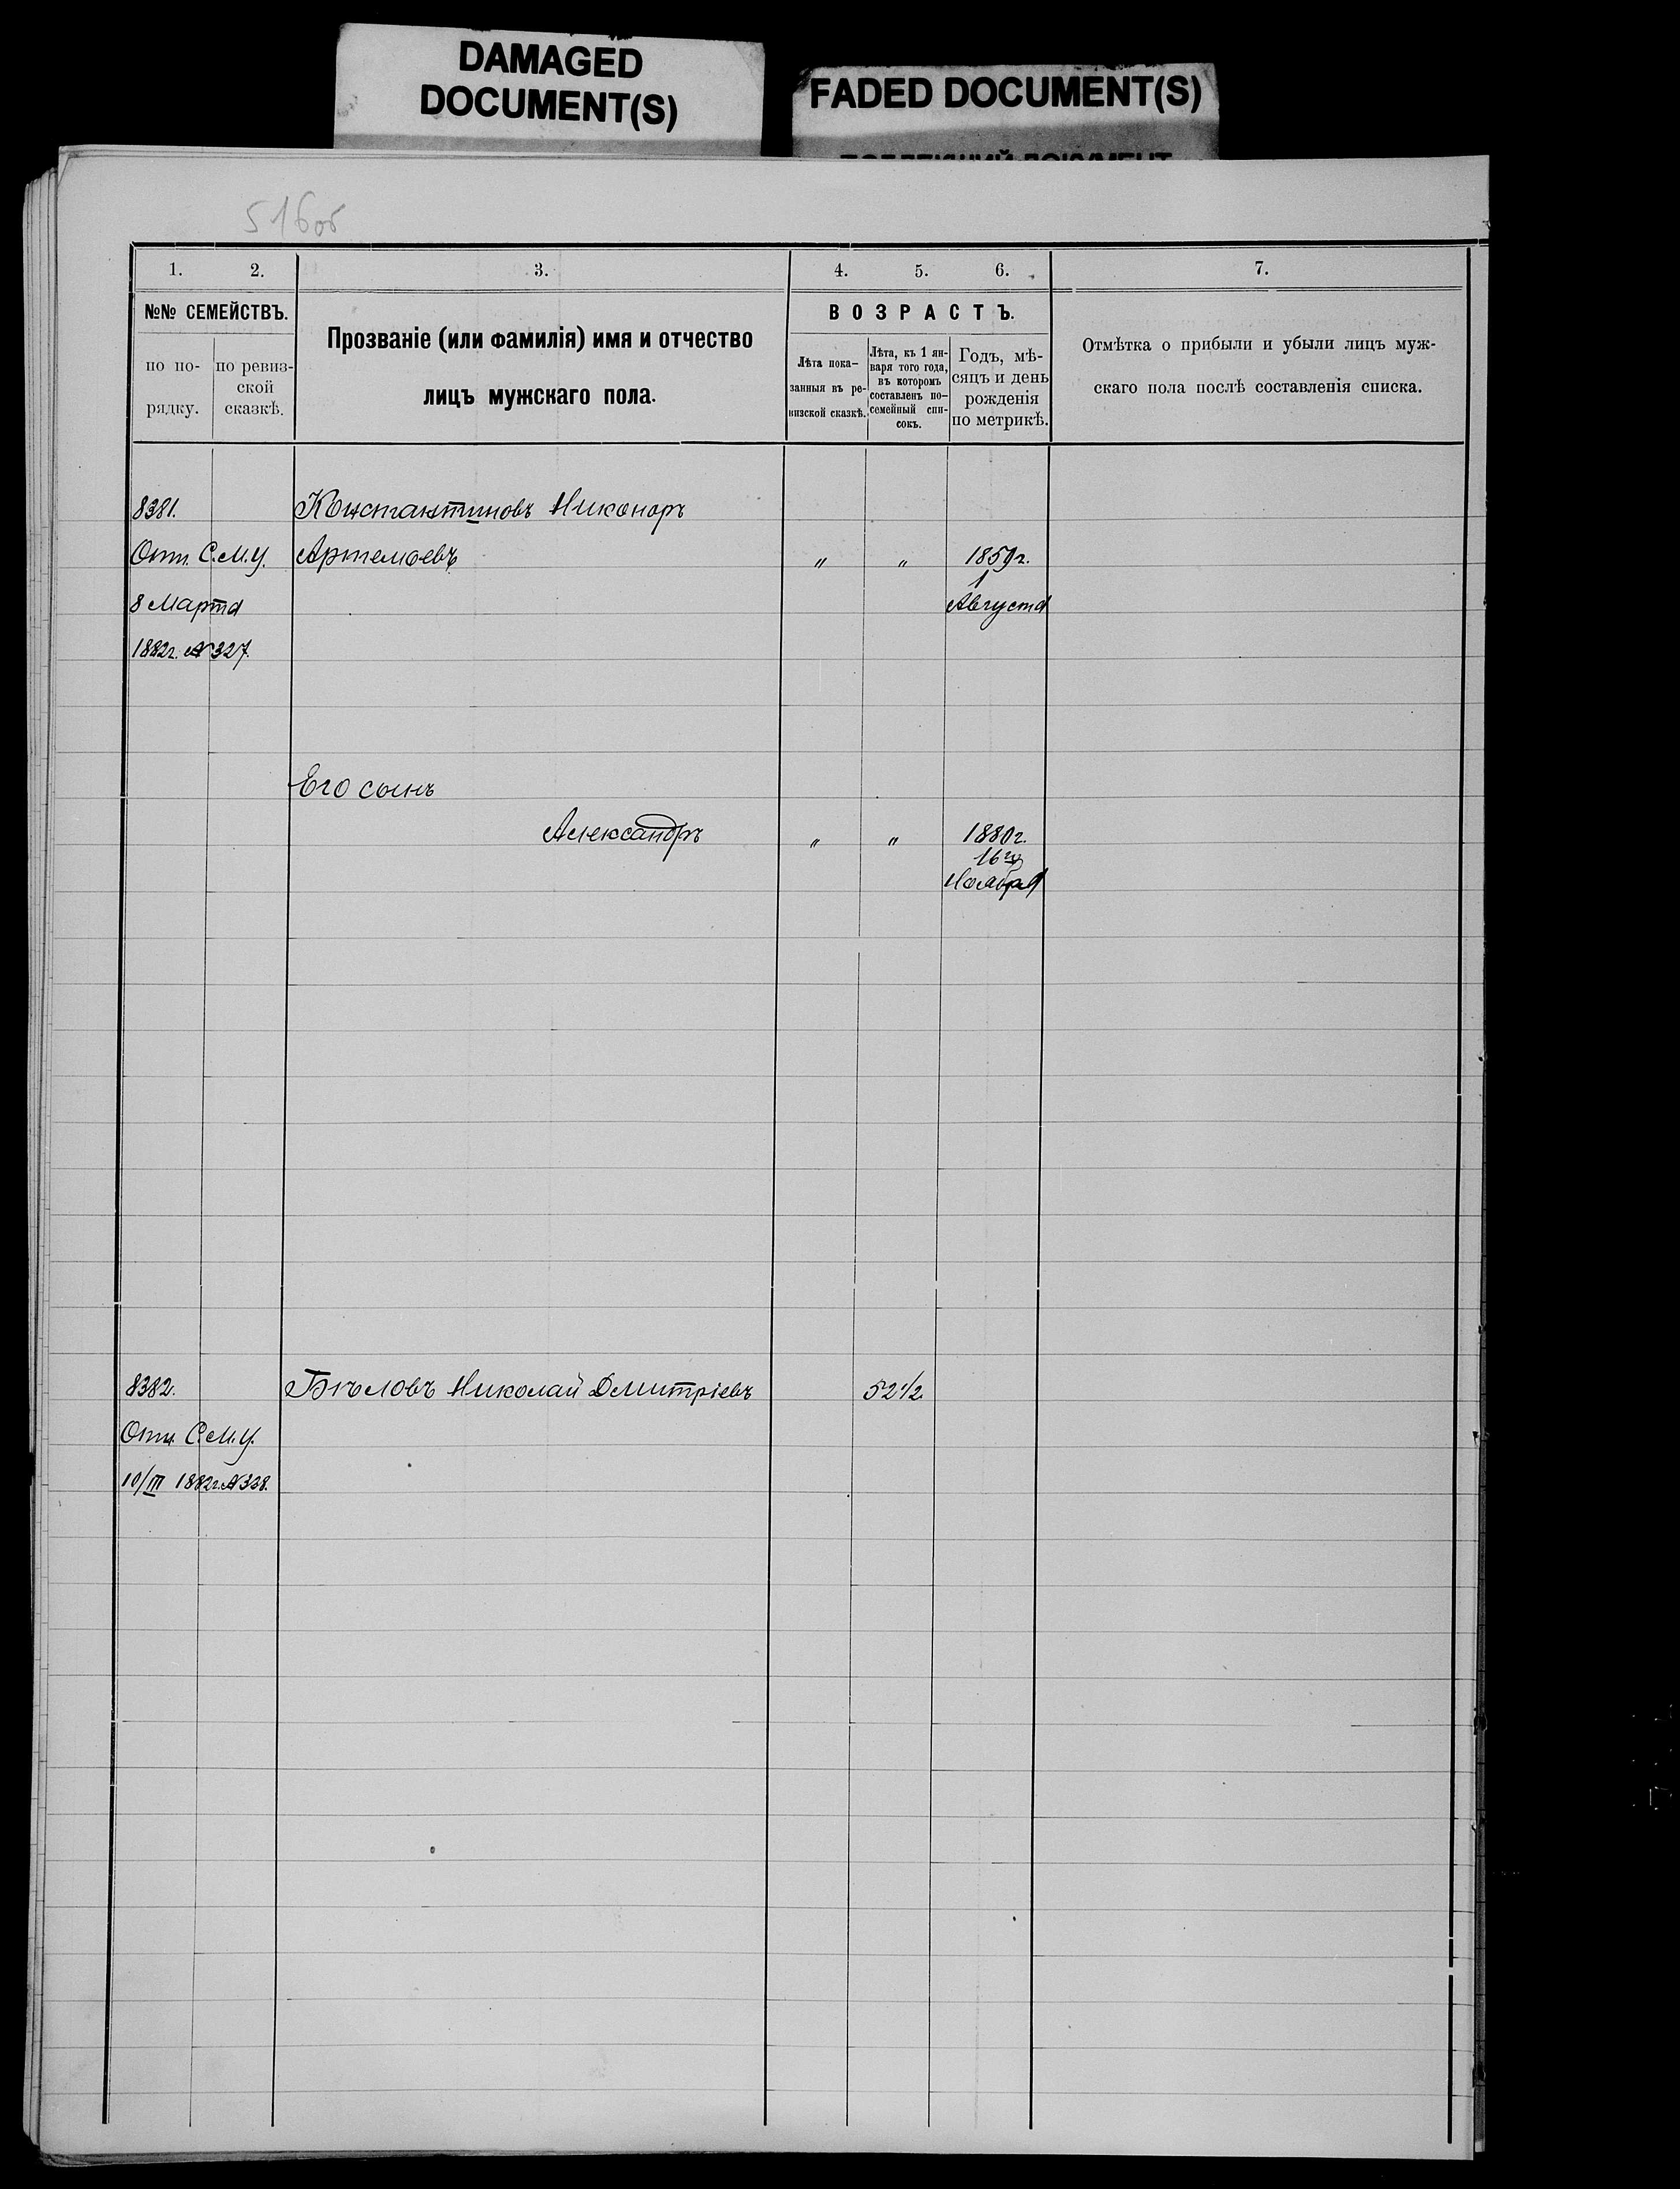 DAMAGED
DOCUMENT(S)
FADED DOCUMENT(S)
516об
1. 2. 3. 4. 5. 6. 7.
№№ СЕМЕЙСТВЪ.
по по-
рядку.
по ревиз-
ской
сказкѣ.
Прозваніе (или фамилія) имя и отчество
лицъ мужскаго пола.
ВОЗРАСТЪ.
Лѣта пока-
занныя въ ре-
визской сказкѣ.
Лѣта, къ 1 ян-
варя того года,
въ которомъ
составленъ по-
семейный спи-
сокъ.
Годъ, мѣ-
сяцъ и день
рожденія
по метрикѣ.
Отмѣтка о прибыли и убыли лицъ муж-
скаго пола послѣ составленія списка.
8381. Константиновъ Никоноръ
Отн. С.М.У. Артемьевъ " " 1859г.
1
8 Марта Августа
1882г. № 327.
Его сынъ
Александръ " " 1880г.
16го
Ноября
8382. Бѣловъ Николай Дмитріевъ 52 1/2
Отн. С.М.У.
10/III 1882г. № 338.